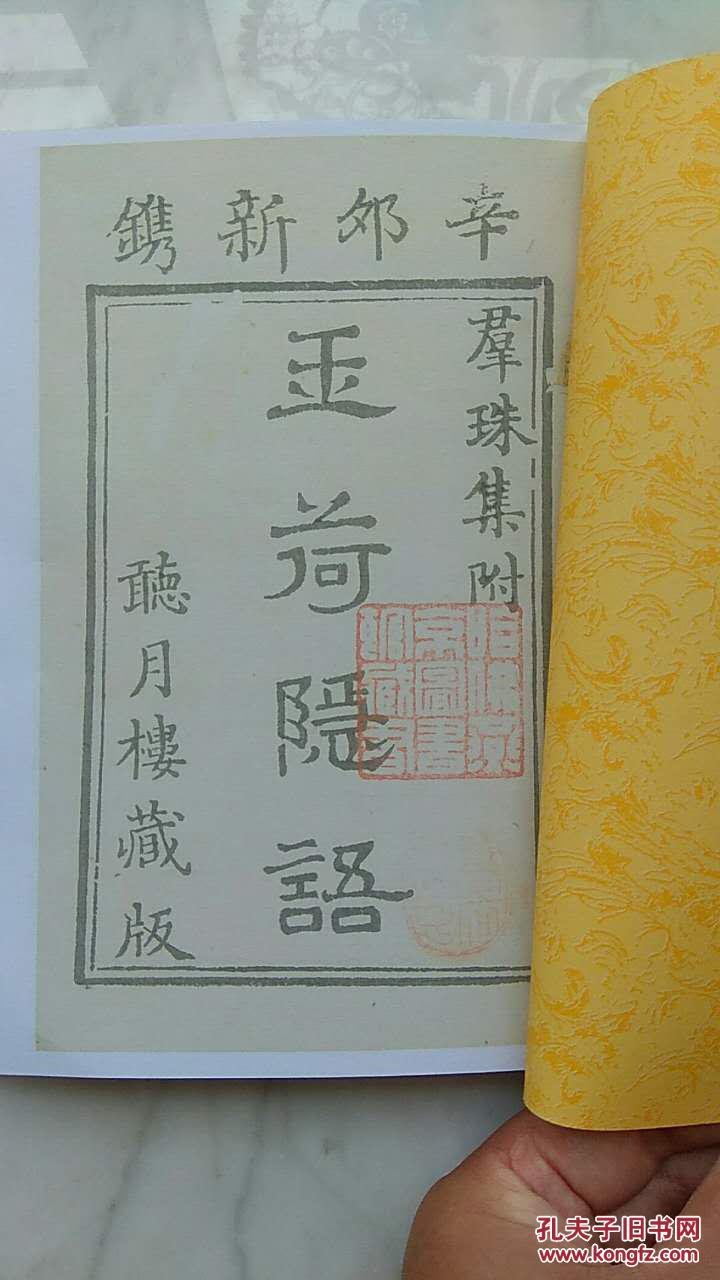 辛夘新鐫
羣珠集附
玉荷隱語
聽月樓藏版
孔夫子旧书网
www.kongfz.com